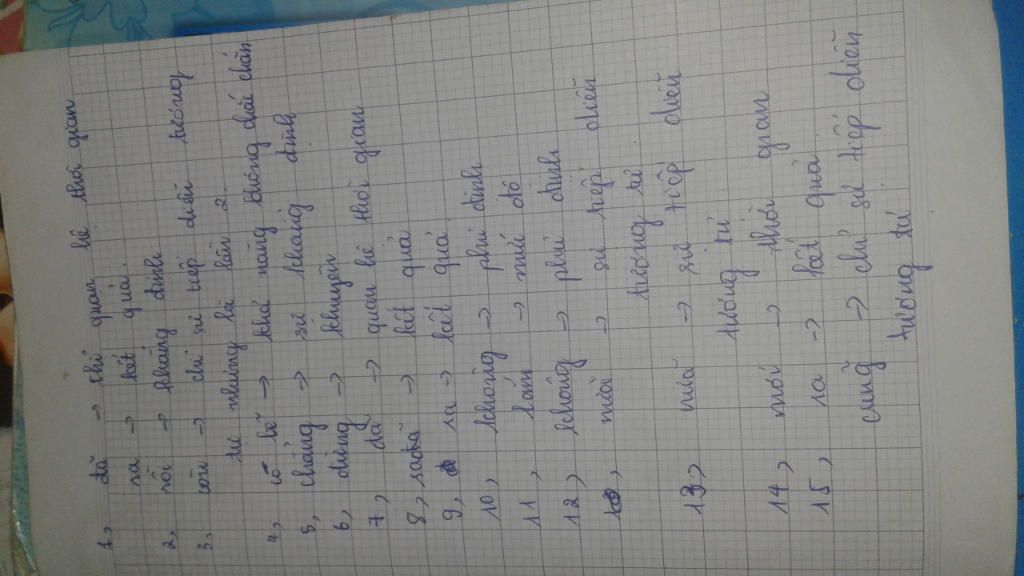 1, đã -> chỉ quan hệ thời gian
ra -> kết quả.
2, rồi -> khẳng định
3, còn -> chỉ sự tiếp diễn tương
tự nhưng là lần 2.
4, có lẽ -> khả năng không chắc chắn
5, chẳng -> sự khẳng định
6, đừng -> khuyên
7, đã -> quan hệ thời gian
8, ra -> kết quả
9, ra -> kết quả
10, không -> phủ định
11, lắm -> mức độ
12, không -> phủ định
nữa -> sự tiếp diễn
tương tự
13, nữa -> sự tiếp diễn
tương tự
14, mới -> thời gian
15, ra -> kết quả
cũng -> chỉ sự tiếp diễn
tương tự